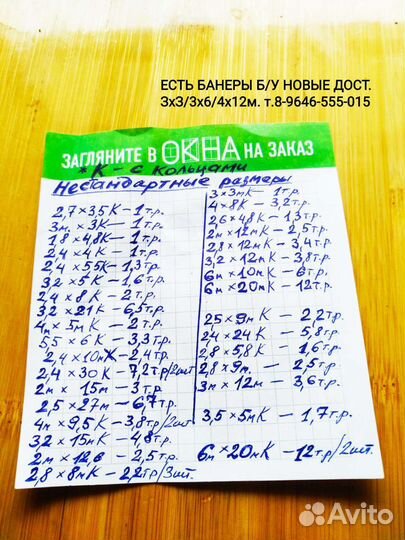 ЕСТЬ БАНЕРЫ Б/У НОВЫЕ ДОСТ.
3х3/3х6/4х12м. т.8-9646-555-015
ЗАГЛЯНИТЕ В ОКНА НА ЗАКАЗ
*К - с кольцами
Нестандартные размеры
2,7×3,5К – 1т.р.
3м×3К – 1т.р.
1,8×4,8К – 1т.р.
2,4×4К – 1т.р.
2,4×5,5К – 1,3т.р.
3,2×5К – 1,6т.р.
2,4×8К – 2т.р.
3,2×21К – 6,5т.р.
4м×5мК – 2т.р.
5,5×6К – 3,3т.р.
2,4×10мК – 2,4т.р.
2,4×30К – 7,2т.р/2шт
2м×15м – 3т.р.
2,5×27м – 6,7т.р.
4м×9,5К – 3,8т.р/2шт
3,2×15мК – 4,8т.р.
2м×12,6 – 2,5т.р.
2,8×8мК – 2,2тр/3шт.
3×3мК – 1т.р.
4×8К – 3,2т.р.
2,6×4,8К – 1,3т.р.
2м×12мК – 2,5т.р.
2,8×12мК – 3,4т.р.
3,2×12мК – 3,8т.р.
6м×10мК – 6т.р.
6м×20мК – 12т.р.
2,5×9мК – 2,2т.р.
2,4×24К – 5,8т.р.
2,8×5,8К – 1,6т.р.
2,8×9м – 2,5т.р.
3м×12м – 3,6т.р.
3,5×5мК – 1,7т.р.
6м×20мК – 12тр/2шт.
Avito